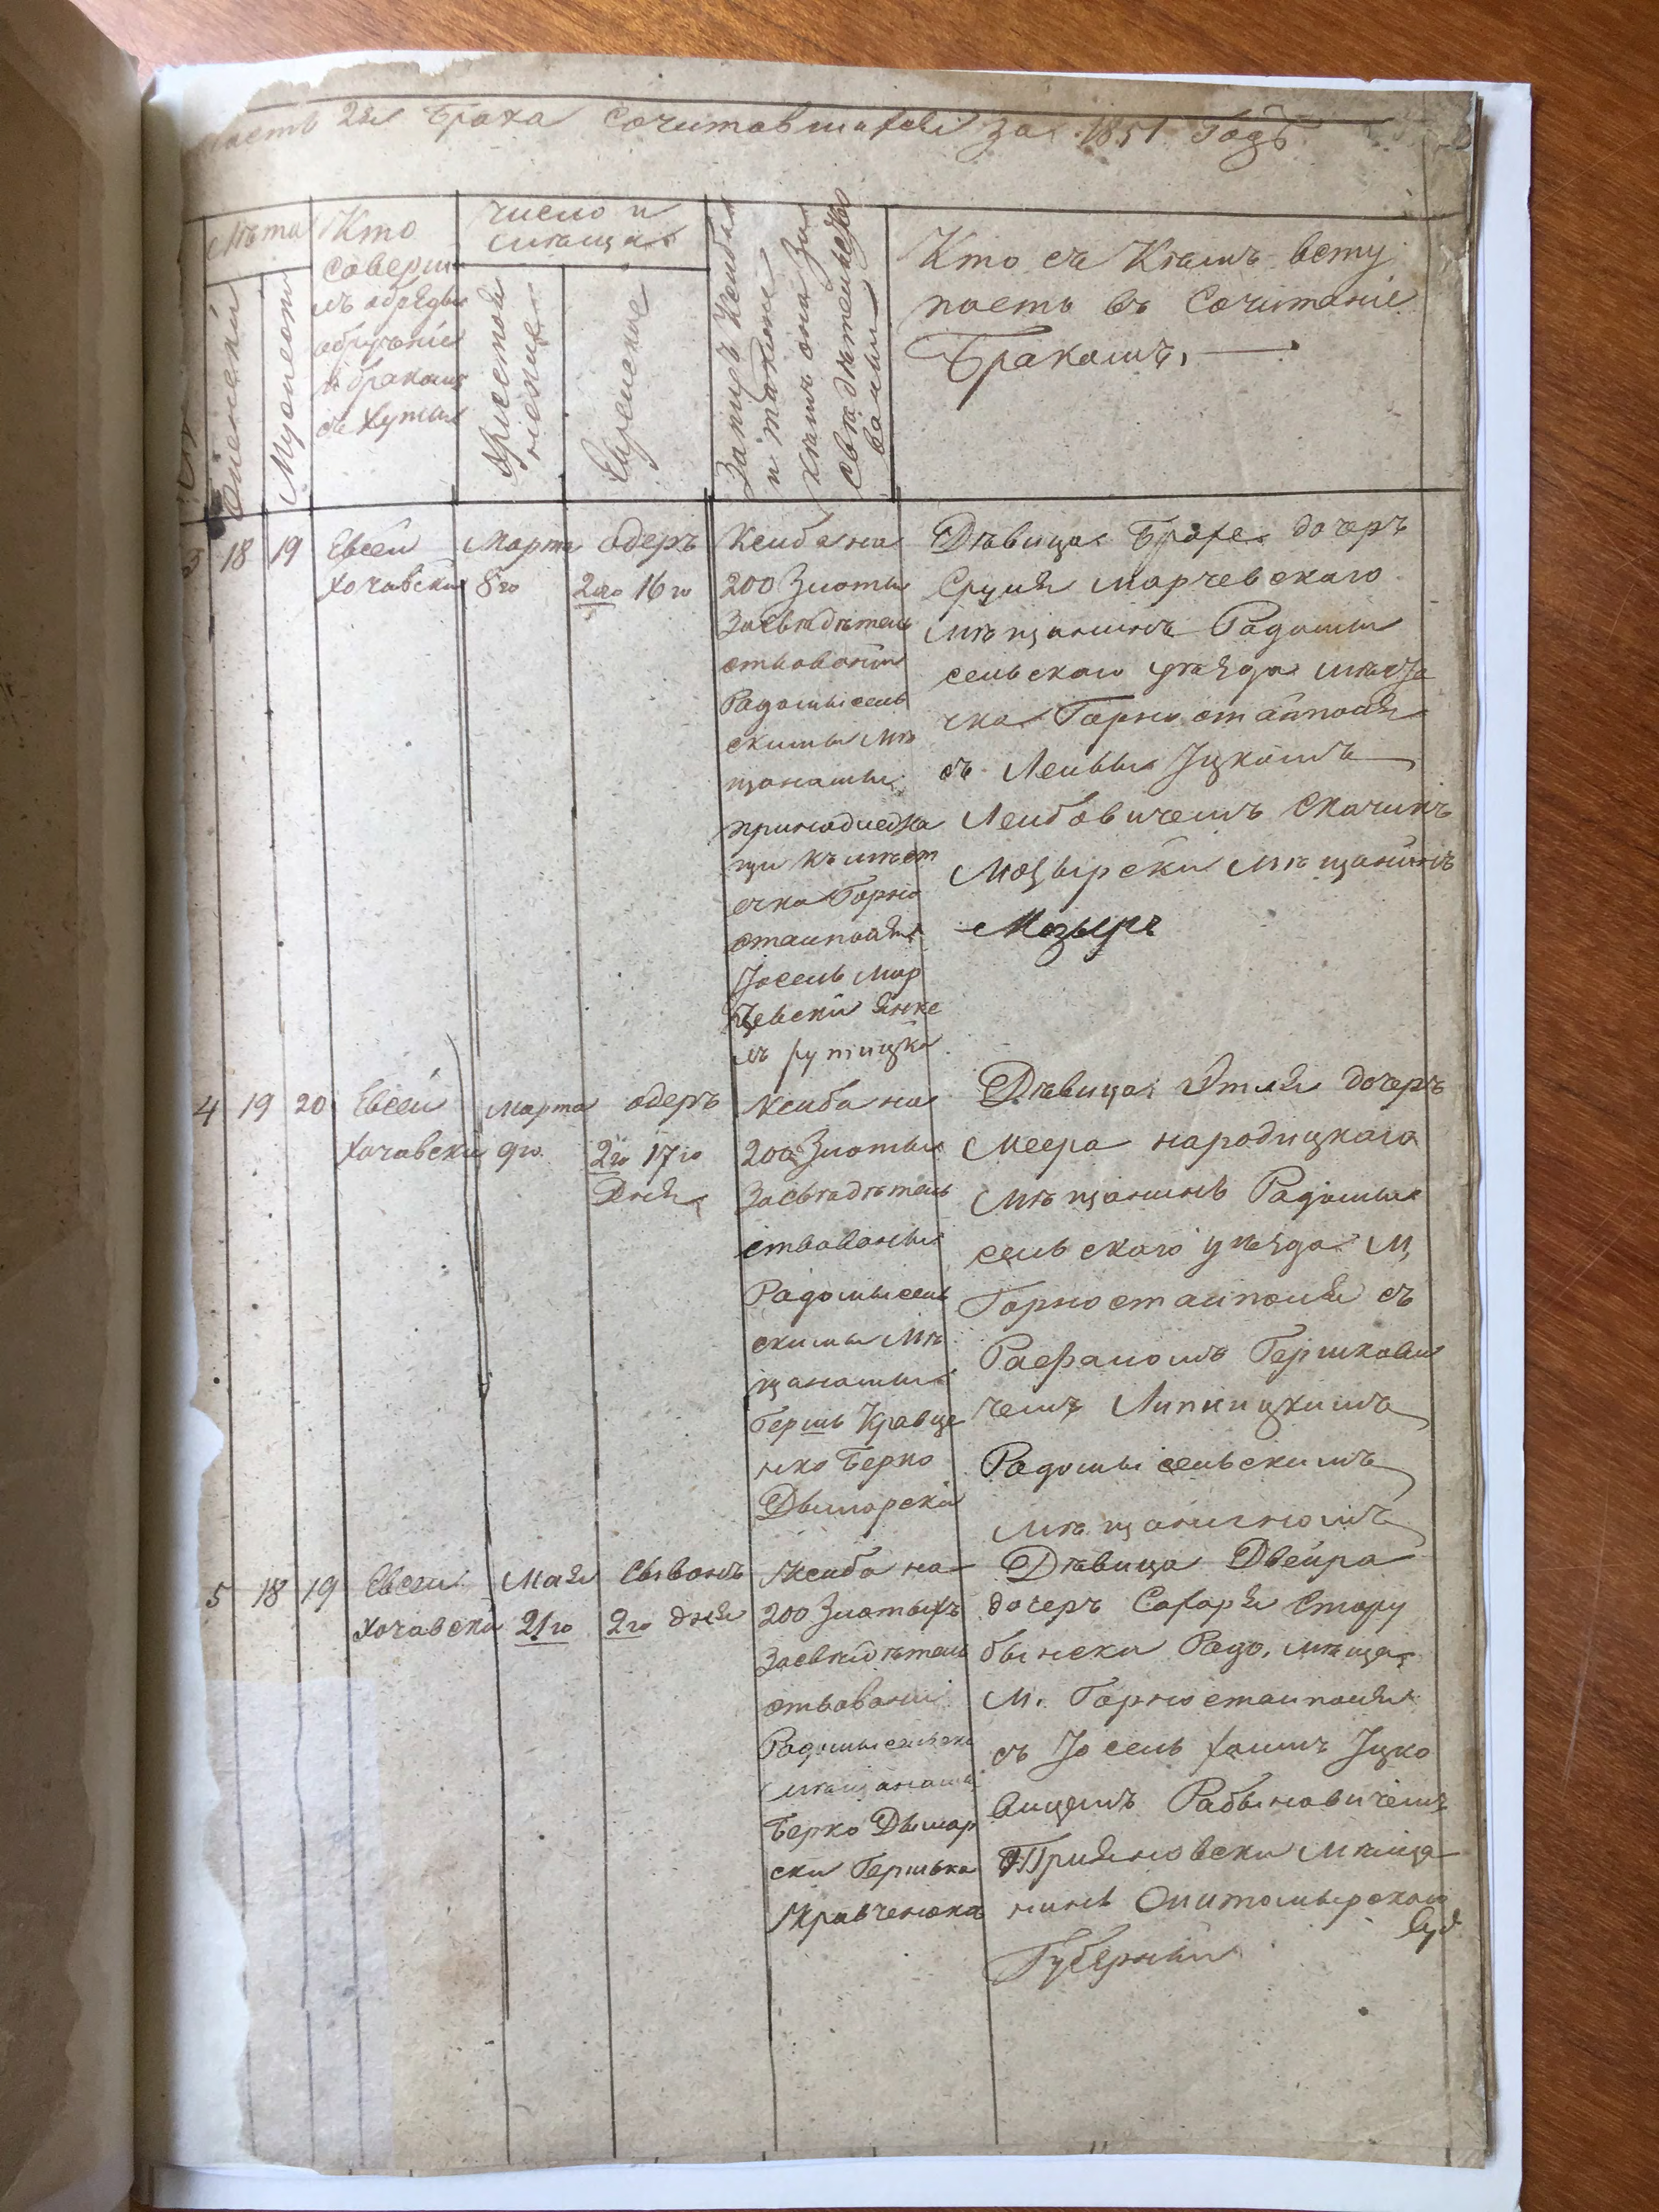 часть 2я Брака сочитавшихся за 1851 Годъ
Лѣта
Женски
Мужески
Кто
соверш
лъ обряды
обрученіе
и бракамъ
Число и
мѣсяцъ
Христіян
Еврейское
Кто съ Кѣмъ всту
паетъ въ сочитаніе
Бракомъ,
3 18 19
Евсей
Хочавски
Марта
8го
Адеръ
2го 16го
Ксиба на
200 Злоты
Засвѣдѣтель
ствованы
Радомысель
скимы мѣ
щанамы
принадлежа
щи къ мѣст
ечка Горно
стаиполя
Іосель Мар
чевски Янке
ль
Дѣвица Брахе дочеръ
Сруля Марчевскаго
мѣщанинъ Радомы
сельскаго уѣзда мѣсте
чка Горностайполя
съ Лейбы Іцкомъ
Лейбовичемъ
Мозырски мѣщанинъ
Мозырь
4 19 20
Евсей
Хочавски
Марта
9го
Адеръ
2го 17го
Дня
Ксиба на
200 Злотых
Засвѣдѣтель
ствованы
Радомысель
скимы мѣ
щанамы
Гершь Кравце
нко Берко
Дымарски
Дѣвица Этля дочеръ
Меера Народицкаго
мѣщанинъ Радомы
сельскаго уѣзда м,
Горностаиполя съ
Рафаломъ Гершкови
чемъ Липницкимъ
Радомысельскимъ
мѣщаниномъ
5 18 19
Евсей
Хочавски
Мая
21го
Сывонъ
2го дня
Ксиба на
200 Злотыхъ
Засвѣдѣтель
ствовани
Радомысельски
мѣщанамы
Берко Дымар
ски Гершька
Кравченюка
Дѣвица Двейра
дочеръ Сахаря Стару
бынски Радо. мѣща
м. Горностаиполя
съ Іосель Хаимъ Іцко
вицемъ Рабыновичемъ
мѣща
нинъ Житомырской
Губерныи